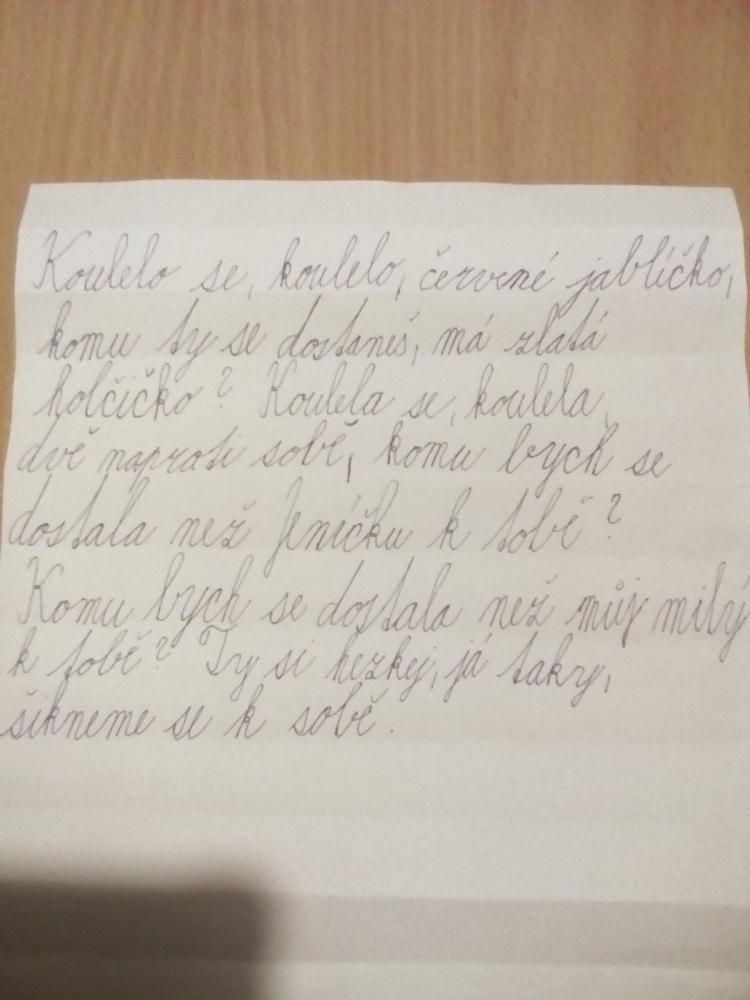 Koulelo se, koulelo, červené jablíčko,
komu ty se dostaneš, má zlatá
holčičko? Koulela se, koulela,
dvě naproti sobě, komu bych se
dostala než Jeníčku k tobě?
Komu bych se dostala než můj milý
k tobě? Ty si hezkej, já taky,
šikneme se k sobě.